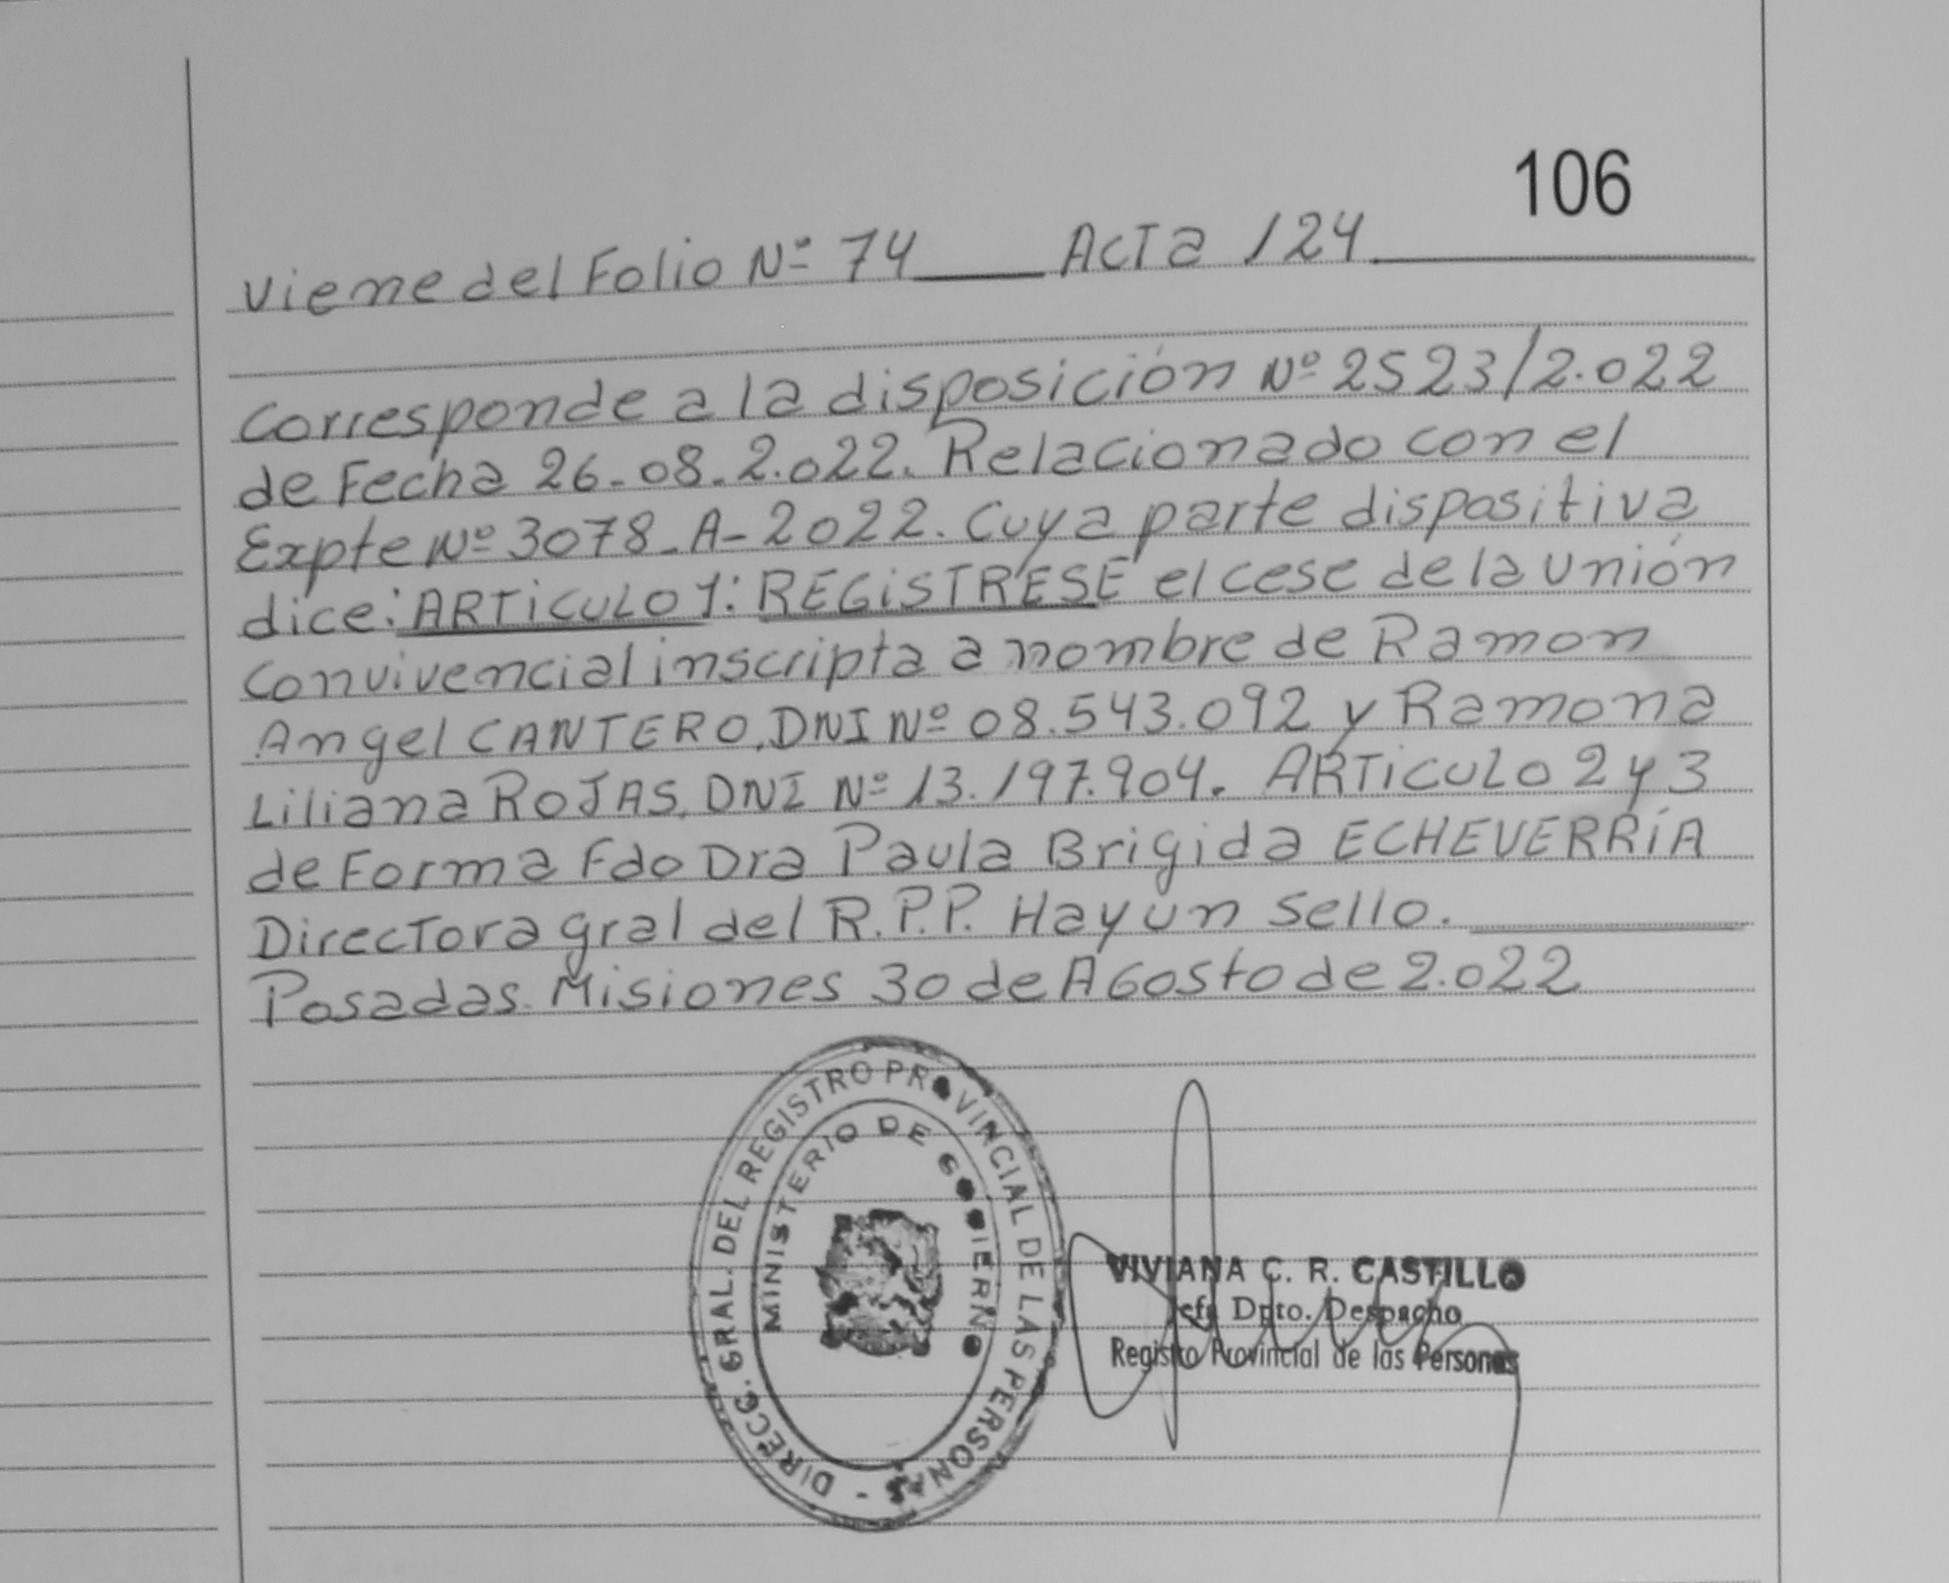 106
Viene del Folio Nº 74 ____ Acta 124 ____
Corresponde a la disposición Nº 2523/2.022
de Fecha 26-08-2.022. Relacionado con el
Expte Nº 3078-A-2022. Cuya parte dispositiva
dice: ARTICULO 1: REGISTRESE el cese de la Unión
Convivencial inscripta a nombre de Ramon
Angel CANTERO, DNI Nº 08.543.092 y Ramona
Liliana ROJAS, DNI Nº 13.197.904. ARTICULO 2 y 3
de Forma Fdo Dra Paula Brigida ECHEVERRÍA
Directora gral del R.P.P. Hay un sello. ____
Posadas Misiones 30 de Agosto de 2.022
DIRECC. GRAL. DEL REGISTRO PROVINCIAL DE LAS PERSONAS -
MINISTERIO DE GOBIERNO
VIVIANA C. R. CASTILLO
Jefe Dpto. Despacho
Registro Provincial de las Personas